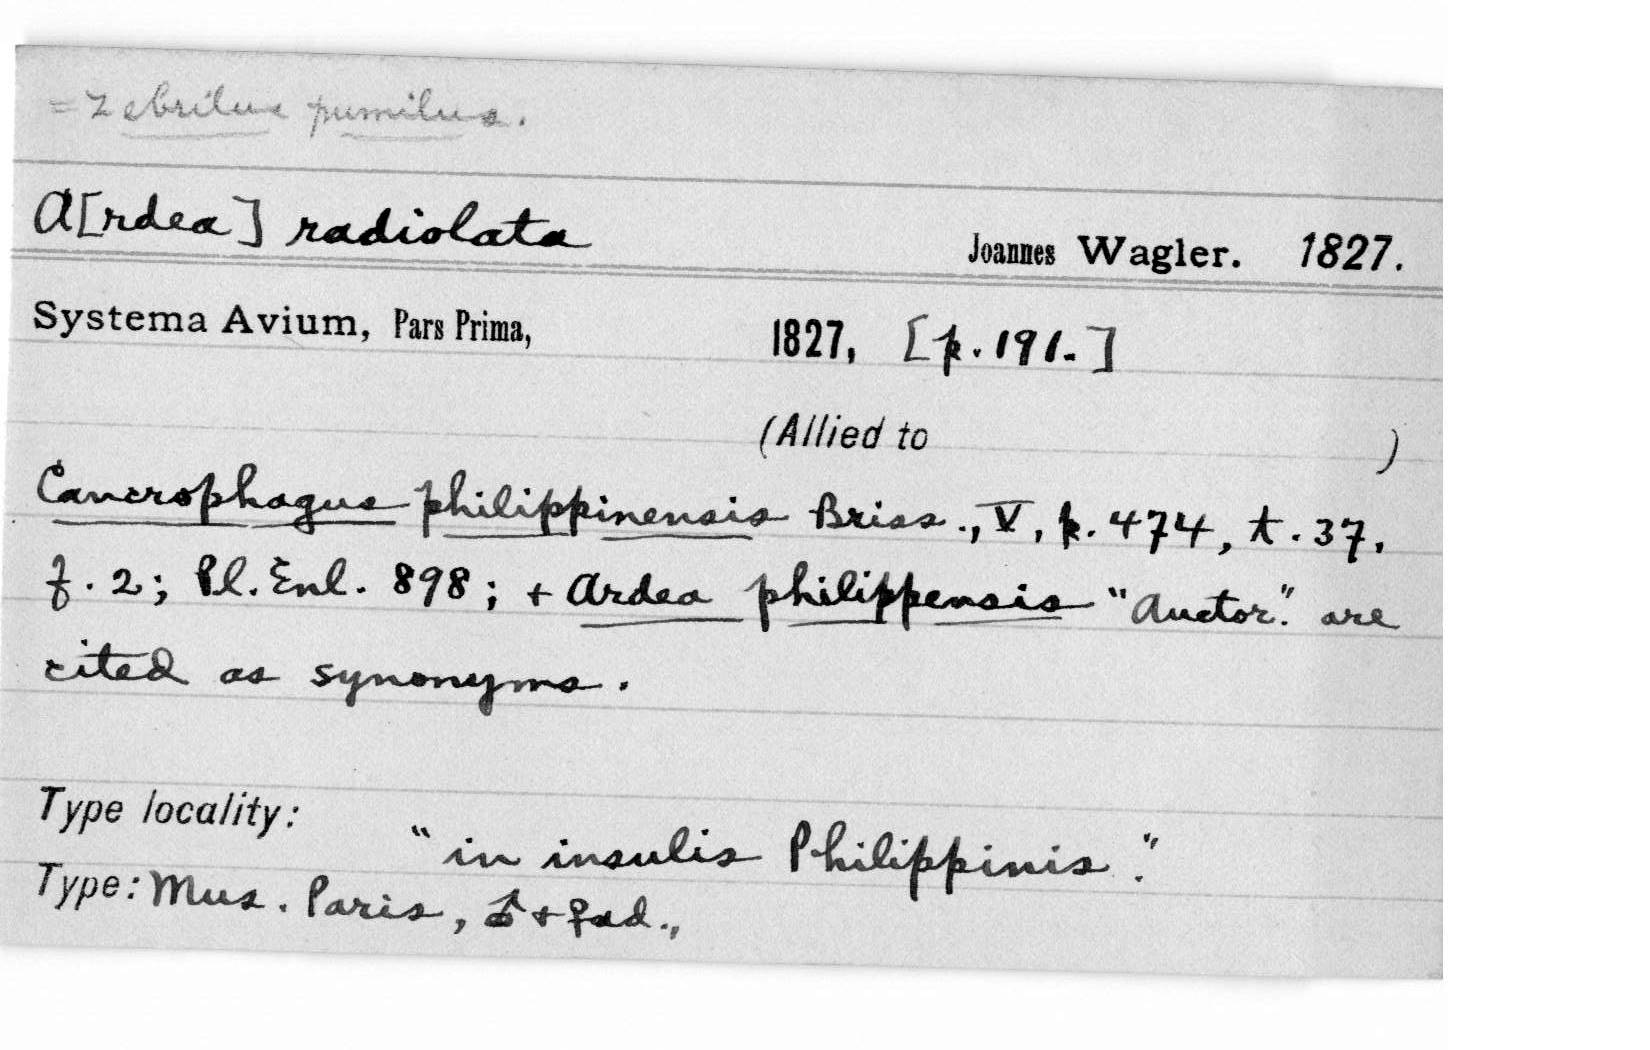 = Zebrilus pumilus.
A[rdea] radiolata
Joannes Wagler. 1827.
Systema Avium, Pars Prima, 1827, [p. 191.]
(Allied to )
Cancrophagus philippinensis Briss., V, p. 474, t. 37,
f. 2; Pl. Enl. 898; + Ardea philippensis "Auctor." are
cited as synonyms.
Type locality:
"in insulis Philippinis."
Type: Mus. Paris, ♂ + ♀ ad.,